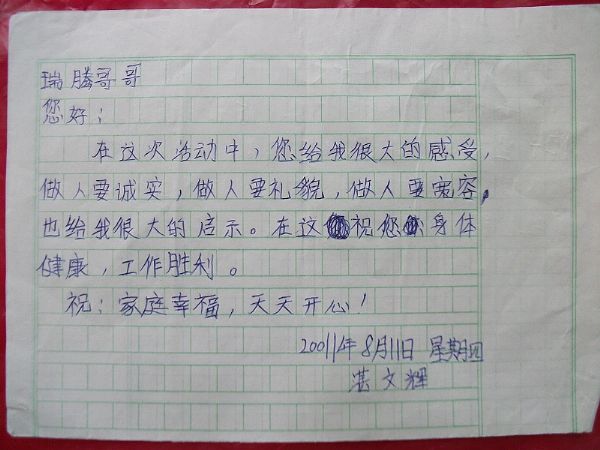 瑞腾哥哥
您好：
在这次活动中，您给我很大的感受，
做人要诚实，做人要礼貌，做人要宽容，
也给我很大的启示。在这祝您身体
健康，工作胜利。
祝：家庭幸福，天天开心！
2011年8月11日 星期四
湛文辉